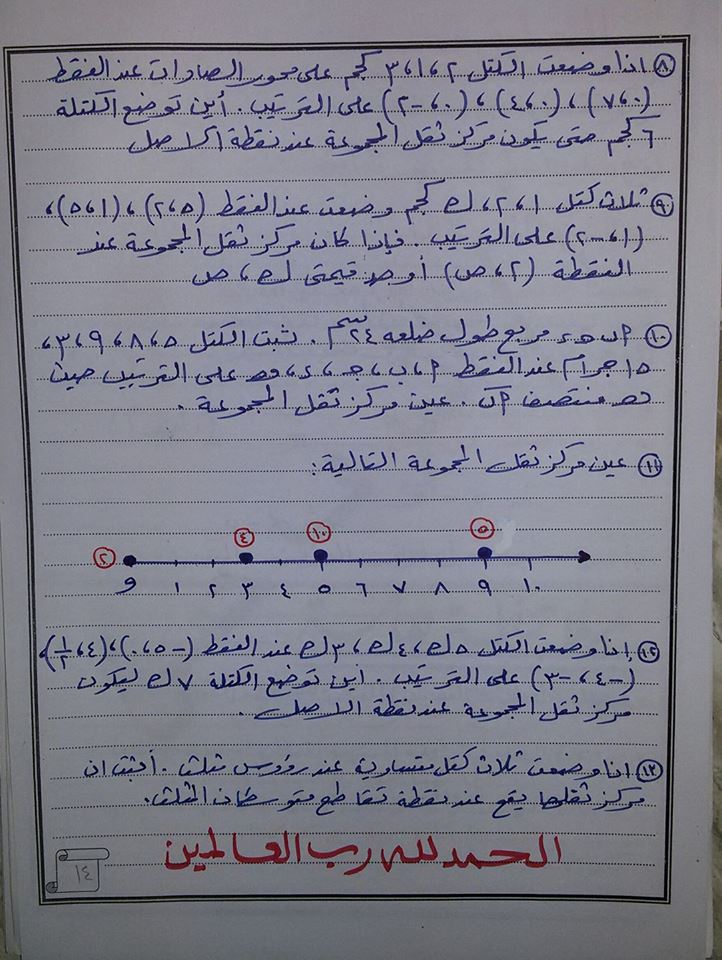 ٨ اذا وضعت الكتل ٢ ، ١ ، ٣ كجم على محور الصادات عند النقط
(٠ ، ٧) ، (٠ ، ٤) ، (٠ ، -٢) على الترتيب . أين توضع الكتلة
٦ كجم حتى يكون مركز ثقل المجموعة عند نقطة الاصل
٩ ثلاث كتل ١ ، ٢ ، ك كجم وضعت عند النقط (٥ ، ٢) ، (١ ، ٥) ،
(١ ، -٢) على الترتيب . فإذا كان مركز ثقل المجموعة عند
النقطة (٢ ، ص) أوجد قيمتى ك ، ص
١٠ ٢ ب ح ء مربع طول ضلعه ٢٤ سم . ثبت الكتل ٥ ، ٨ ، ٩ ، ٣ ،
١٥ جرام عند النقط ٢ ، ب ، جـ ، ء ، هـ على الترتيب حيث
هـ منتصف ٢ ب . عين مركز ثقل المجموعة .
١١ عين مركز ثقل المجموعة التالية :
٢ ٤ ١٠ ٥
و ١ ٢ ٣ ٤ ٥ ٦ ٧ ٨ ٩ ١٠
١٢ إذا وضعت الكتل ٥ ك ، ٤ ك ، ٣ ك عند النقط (-٥ ، ٠) ، (٤ ، ١/٢) ،
(-٤ ، -٣) على الترتيب . اين توضع الكتلة ٧ ك ليكون
مركز ثقل المجموعة عند نقطة الاصل .
١٣ اذا وضعت ثلاث كتل متساوية عند رؤوس مثلث . أثبت ان
مركز ثقلها يقع عند نقطة تقاطع متوسطات المثلث .
الحمد لله رب العالمين
١٤